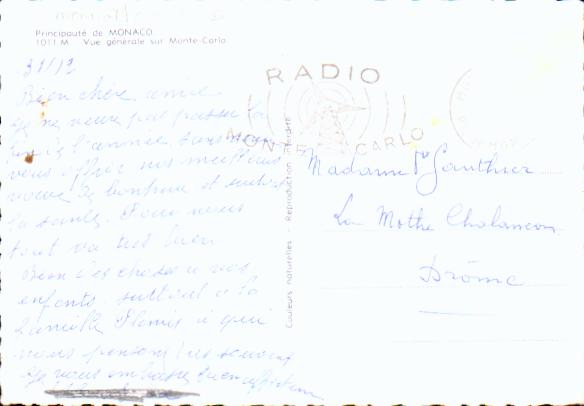 Principauté de MONACO
1011 M. Vue générale sur Monte-Carlo
31/12
Bien chère amie
Je ne veux pas passer la
fin de l'année sans
vous offrir nos meilleurs
voeux de bonheur et surtout
la santé. Pour nous
tout va très bien
Bien des choses à vos
enfants surtout à la
famille à qui
nous pensons très souvent
Je vous embrasse bien
RADIO
MONTE CARLO
Couleurs naturelles - Reproduction interdite
Madame Gauthier
La Mothe Chalancon
Drôme